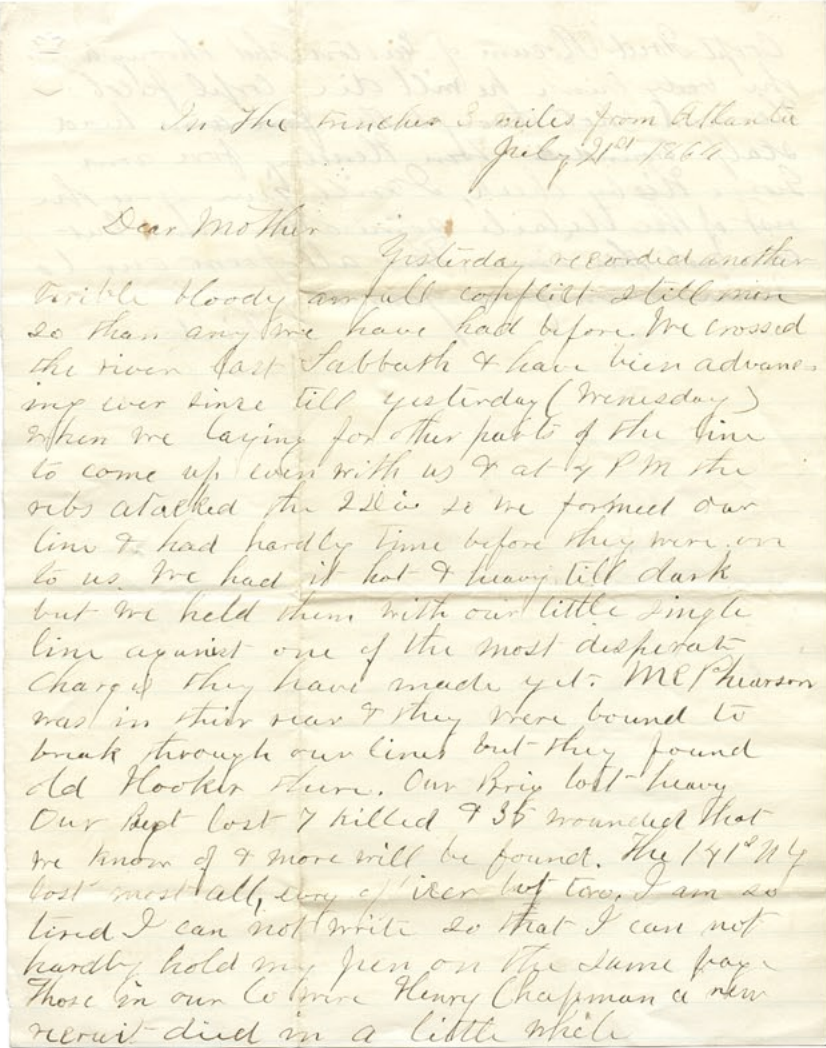 In The trenches 3 miles from Atlanta
July 21st 1864
Dear Mother
Yesterday recorded another
terible bloody awfull conflict still more
so than any we have had before. We crossed
the river last Sabbath & have bien advanc-
ing ever since till yesterday (Wenesday)
when we laying for other parts of the line
to come up even with us & at 4 PM the
rebs atacked the 2 Div so we formed our
line & had hardly time before they were on
to us. We had it hot & heavy till dark
but we held them with our little single
line against one of the most desperate
charges they have made yet. McPhearson
was in thier rear & they were bound to
break through our lines but they found
old Hooker there. Our Brig lost heavy
Our Regt lost 7 killed & 35 wounded that
we know of & more will be found. The 141st NY
lost most all, evry officer but two. I am so
tired I can not write so that I can not
hardly hold my pen on the same page
Those in our Co were Henry Chapman a new
recruit died in a little while